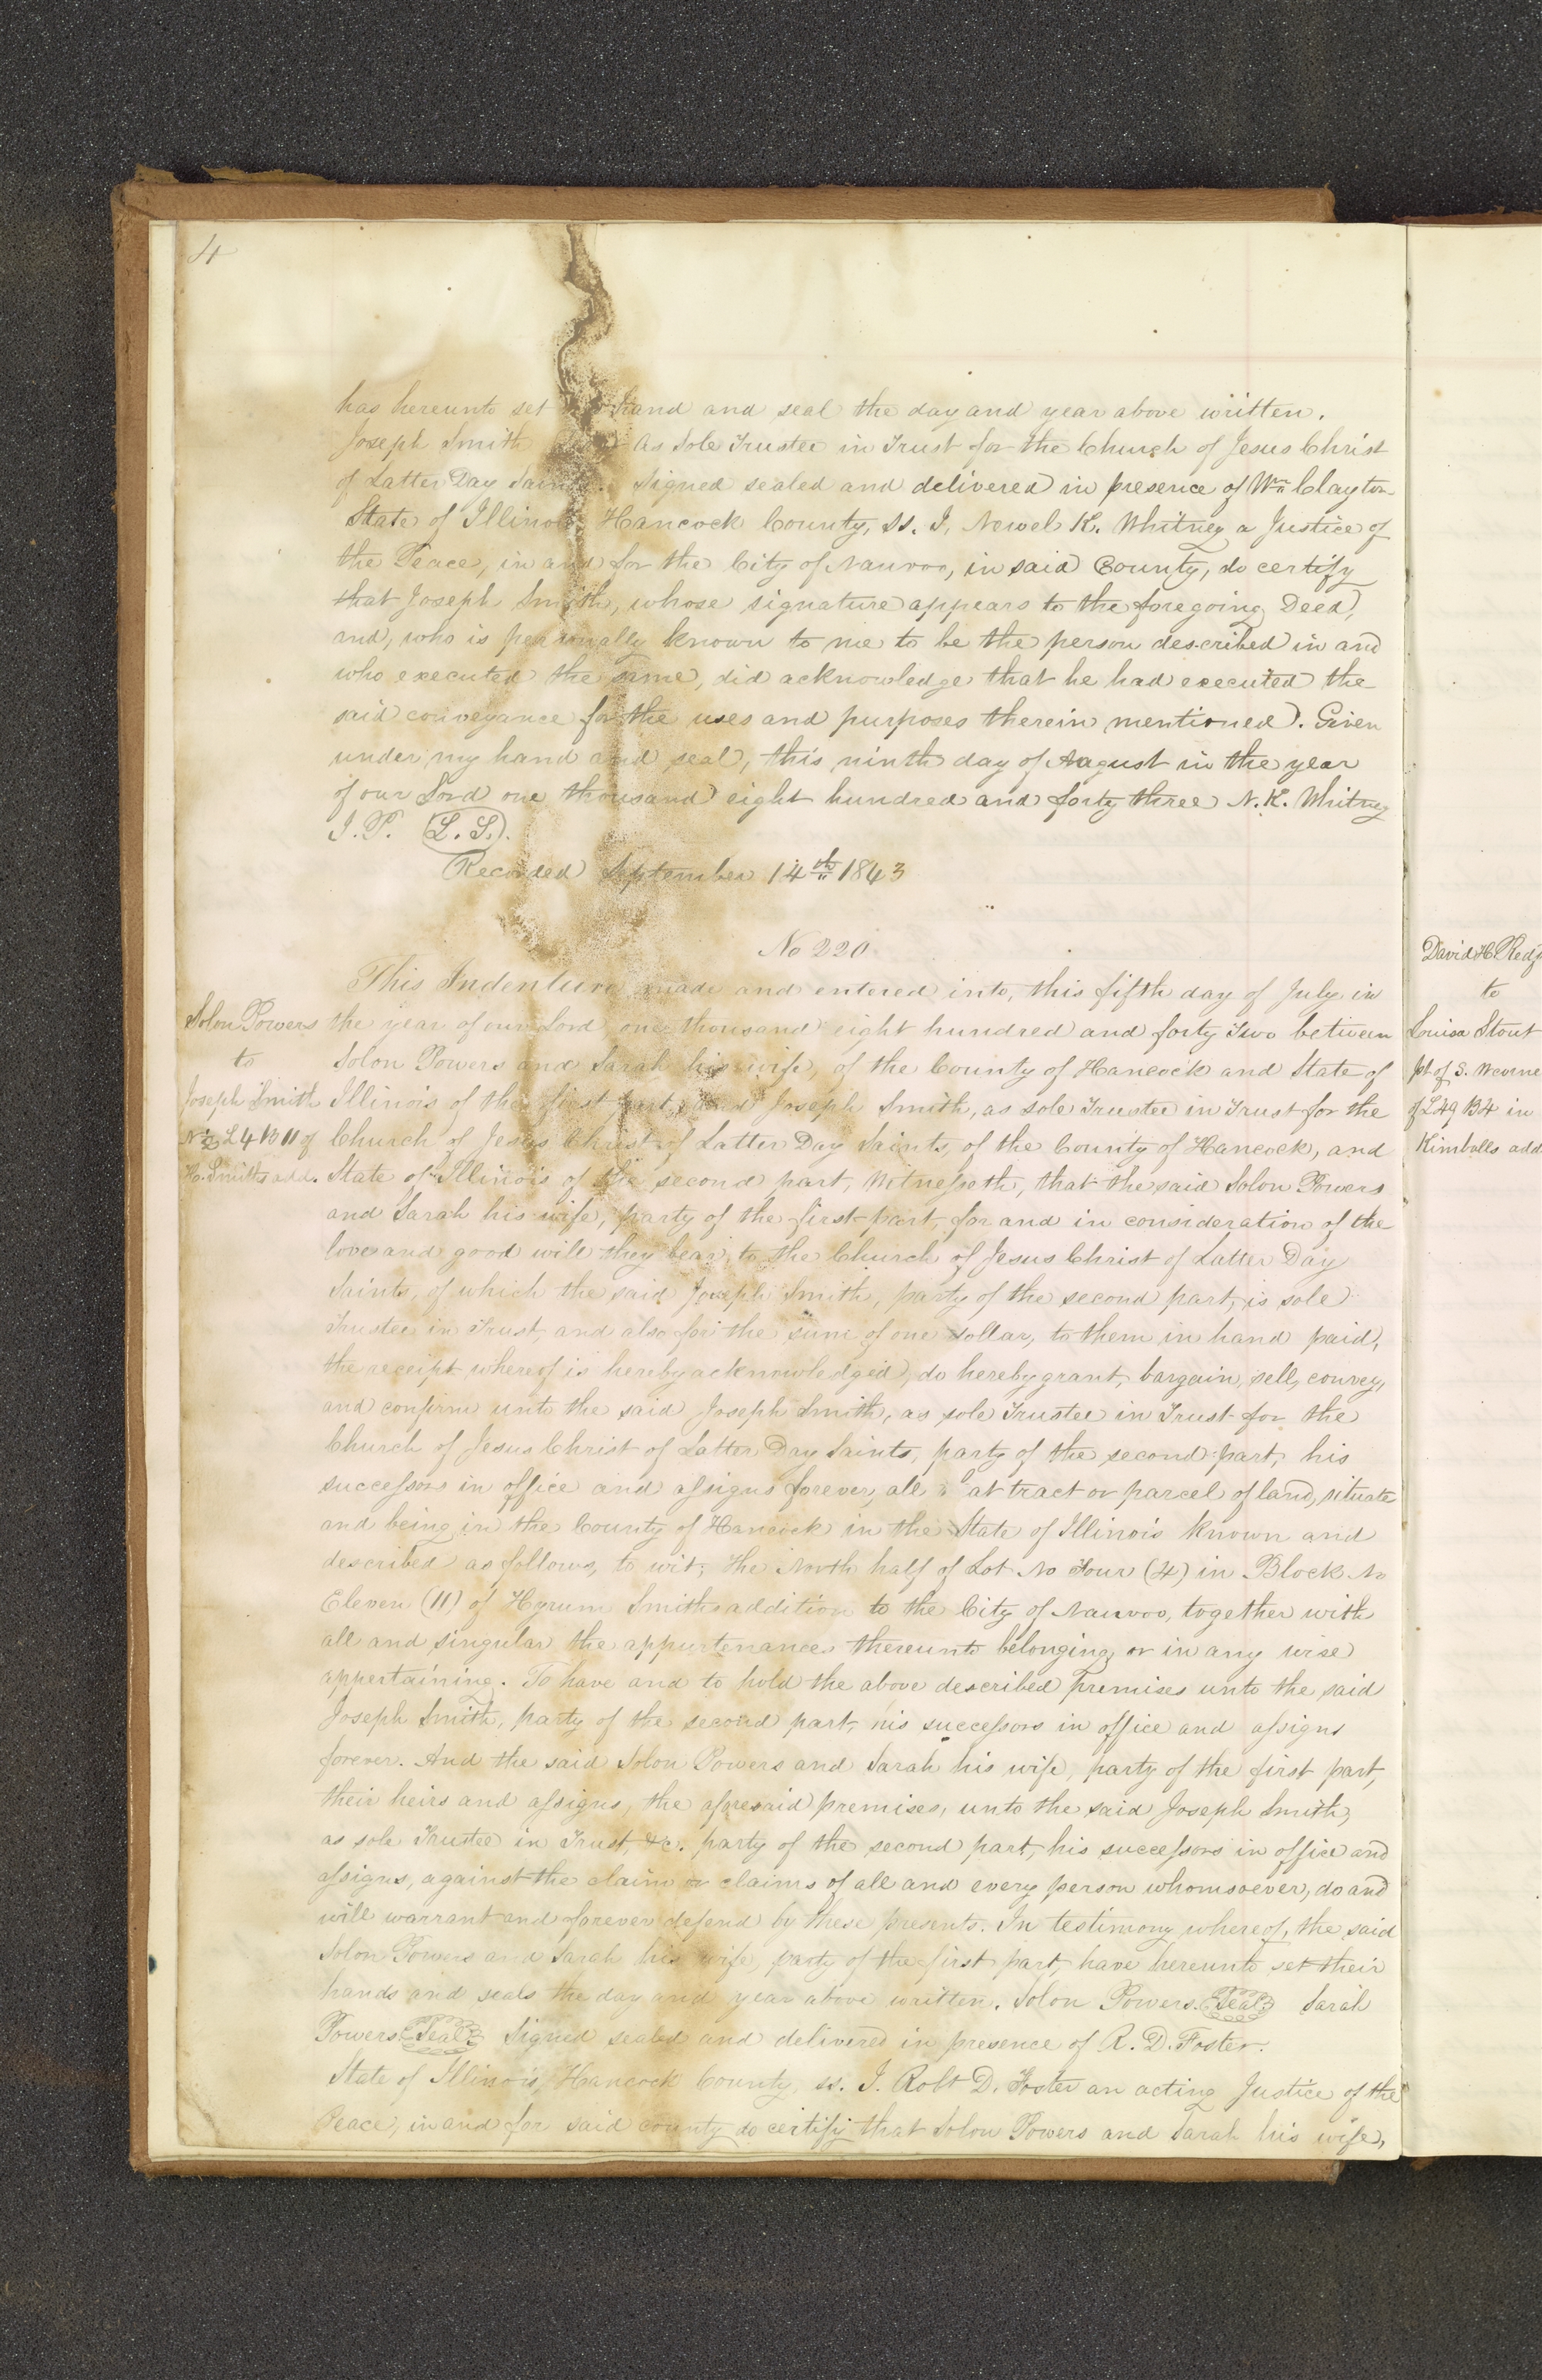 4
has hereunto set hand and seal the day and year above written.
Joseph Smith As Sole Trustee in Trust for the Church of Jesus Christ
of Latter Day Saints. Signed sealed and delivered in presence of Wm Clayton
State of Illinois Hancock County, ss. I, Newel K. Whitney a Justice of
the Peace, in and for the City of Nauvoo, in said County, do certify
that Joseph Smith, whose signature appears to the foregoing Deed,
and, who is personally known to me to be the person described in and
who executed the same, did acknowledge that he had executed the
said conveyance for the uses and purposes therein mentioned. Given
under my hand and seal, this ninth day of August in the year
of our Lord one thousand eight hundred and forty three N. K. Whitney
J. P. (L. S.).
Recorded September 14th 1843
No 220
This Indenture, made and entered into, this fifth day of July in
the year of our Lord one thousand eight hundred and forty Two between
Solon Powers and Sarah his wife, of the County of Hancock and State of
Illinois of the first part, and Joseph Smith, as sole Trustee in Trust for the
Church of Jesus Christ of Latter Day Saints, of the County of Hancock, and
State of Illinois of the second part, Witnesseth, that the said Solon Powers
and Sarah his wife, party of the first part, for and in consideration of the
love and good will they bear, to the Church of Jesus Christ of Latter Day
Saints, of which the said Joseph Smith, party of the second part, is sole
Trustee in Trust, and also for the sum of one dollar, to them in hand paid,
the receipt whereof is hereby acknowledged, do hereby grant, bargain, sell, convey,
and confirm unto the said Joseph Smith, as sole Trustee in Trust for the
Church of Jesus Christ of Latter Day Saints, party of the second part, his
successors in office and assigns forever, all that tract or parcel of land, situate
and being in the County of Hancock in the State of Illinois known and
described as follows, to wit; The North half of Lot No Four (4) in Block No
Eleven (11) of Hyrum Smiths addition to the City of Nauvoo, together with
all and singular the appurtenances thereunto belonging or in any wise
appertaining. To have and to hold the above described premises unto the said
Joseph Smith, party of the second part, his successors in office and assigns
forever. And the said Solon Powers and Sarah his wife, party of the first part,
their heirs and assigns, the aforesaid premises, unto the said Joseph Smith,
as sole Trustee in Trust, &c. party of the second part, his successors in office and
assigns, against the claim or claims of all and every person whomsoever, do and
will warrant and forever defend by these presents. In testimony whereof, the said
Solon Powers and Sarah his wife, party of the first part, have hereunto set their
hands and seals the day and year above written. Solon Powers. Seal Sarah
Powers. Seal Signed sealed and delivered in presence of R. D. Foster.
State of Illinois, Hancock County, ss. I. Robt D. Foster an acting Justice of the
Peace, in and for said county do certify that Solon Powers and Sarah his wife,
Solon Powers
to
Joseph Smith
N ½ L 4 B 11 of
H. Smiths add.
David H. Red
to
Louisa Stout
pt of S.
of L 49 B 4 in
Kimballs add